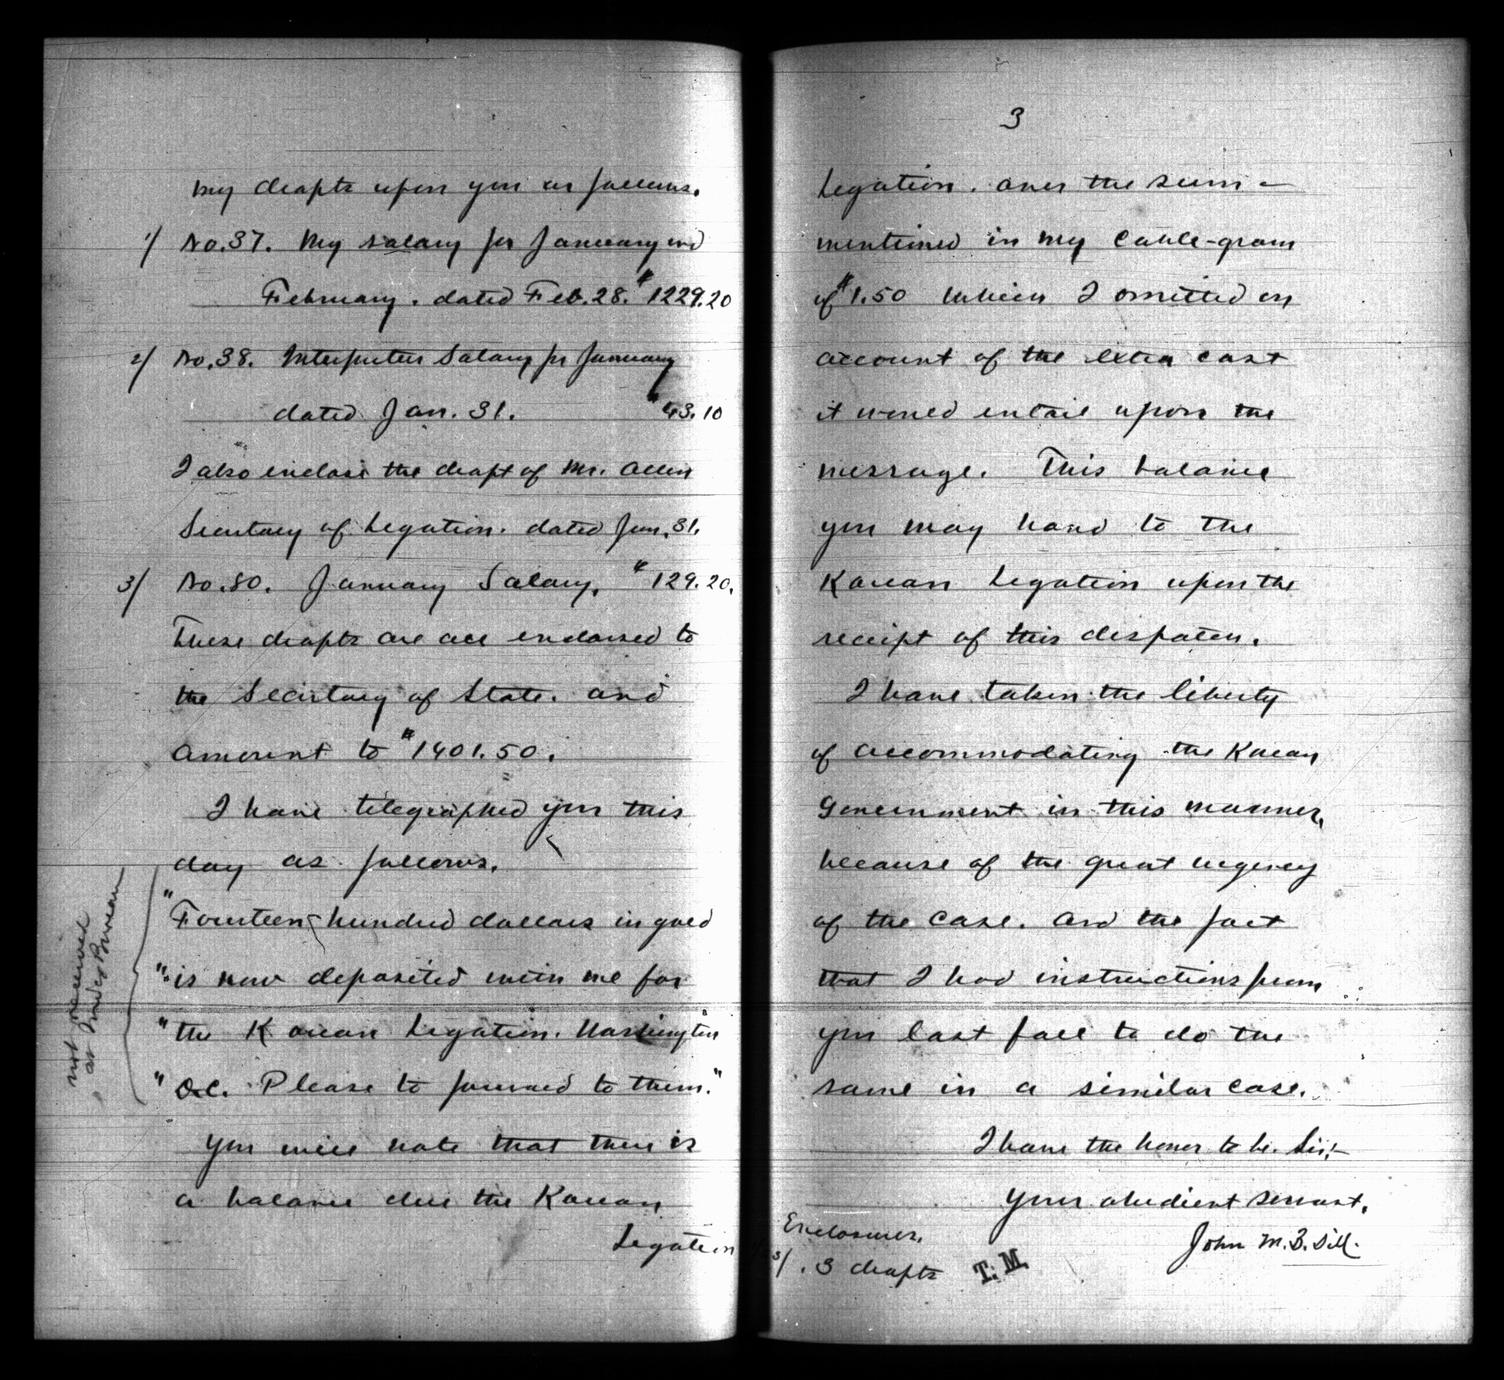 my drafts upon you as follows.
1/ No. 37. My salary for January and
February. dated Feb. 28. $1229.20
2/ No. 38. Interpreters Salary for January
dated Jan. 31. $43.10
I also enclose the draft of Mr. Allen
Secretary of Legation. dated Jan. 31.
3/ No. 80. January Salary, $129.20.
These drafts are all endorsed to
the Secretary of State. and
amount to $1401.50.
I have telegraphed you this
day as follows.
"Fourteen hundred dollars in gold
"is now deposited with me for
"the Korean Legation. Washington
"D.C. Please to forward to them."
not received
as Index Bureau
You will note that there is
a balance due the Korean
Legation
3
Legation. over the sum –
mentioned in my Cable-gram
of $1.50 which I omitted on
account of the extra cost
it would entail upon the
message. This balance
you may hand to the
Korean Legation upon the
receipt of this dispatch.
I have taken the liberty
of accommodating the Korean
Government in this manner,
because of the great urgency
of the case. and the fact
that I had instructions from
you last fall to do the
same in a similar case.
I have the honor to be. Sir,–
Your obedient servant,
John M. B. Sill.
Enclosures.
3/. 3 drafts
T. M.